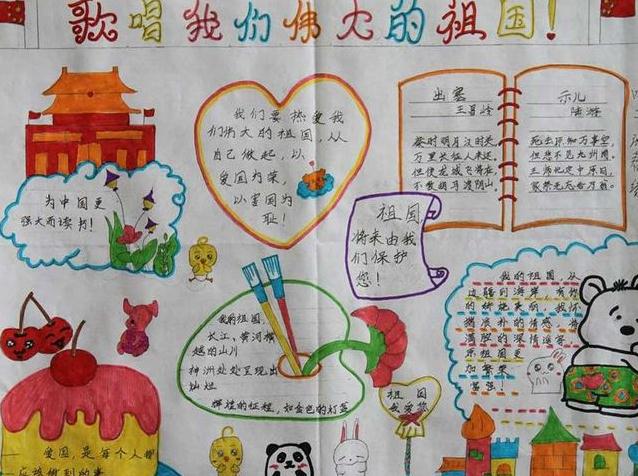 歌唱我们伟大的祖国!
我们要热爱我
们伟大的祖国,从
自己做起,以
爱国为荣,
以害国为
耻!
出塞
王昌龄
秦时明月汉时关
万里长征人未还。
但使龙城飞将在
不教胡马渡阴山。
示儿
陆游
死去原知万事空,
但悲不见九州同。
王师北定中原日,
家祭无忘告乃翁。
为中国更
强大而读书!
祖国
将来由我
们保护
您!
我的祖国,
长江、黄河横
越的山川
神洲处处呈现出
灿烂
辉煌的征程,如金色的灯盏
祖国
我爱您
我的祖国,从
爱国是每个人都
应该做到的事